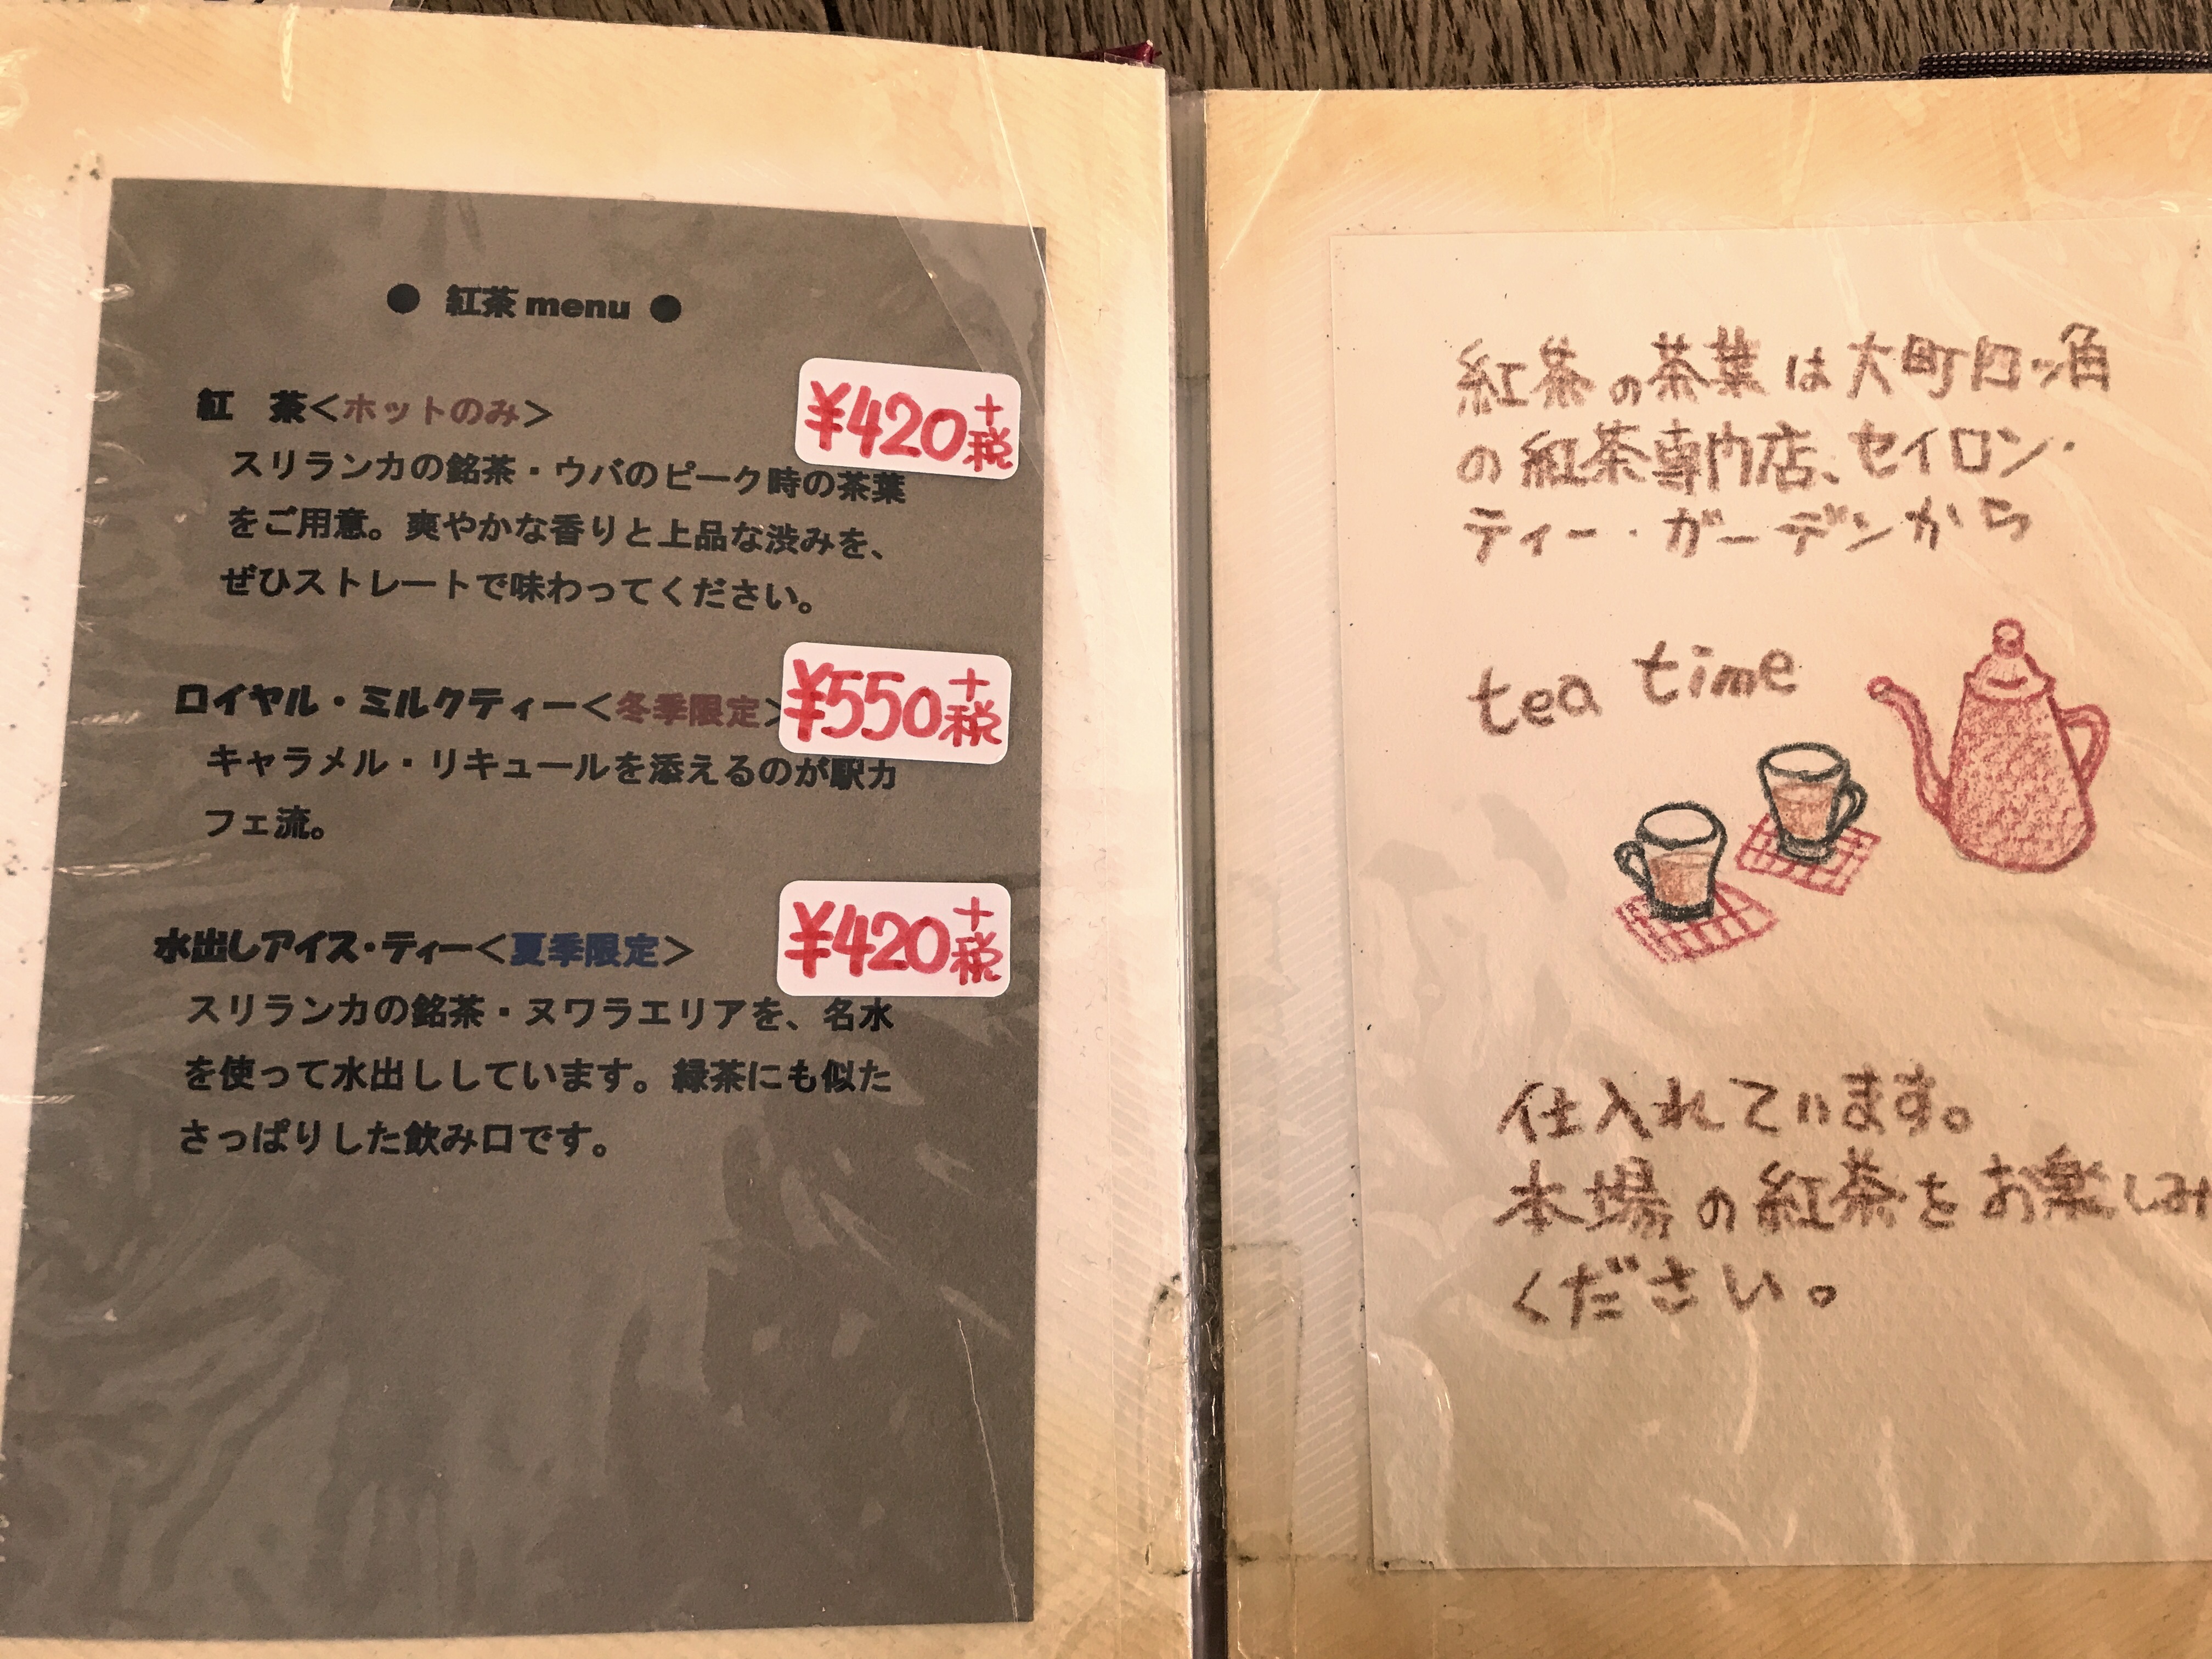 ● 紅茶 menu ●
紅　茶＜ホットのみ＞
¥420+税
スリランカの銘茶・ウバのピーク時の茶葉
をご用意。爽やかな香りと上品な渋みを、
ぜひストレートで味わってください。
ロイヤル・ミルクティー＜冬季限定＞
¥550+税
キャラメル・リキュールを添えるのが駅カ
フェ流。
水出しアイス・ティー＜夏季限定＞
¥420+税
スリランカの銘茶・ヌワラエリアを、名水
を使って水出ししています。緑茶にも似た
さっぱりした飲み口です。
紅茶の茶葉は大町四ッ角
の紅茶専門店、セイロン・
ティー・ガーデンから
tea time
仕入れています。
本場の紅茶をお楽しみ
ください。